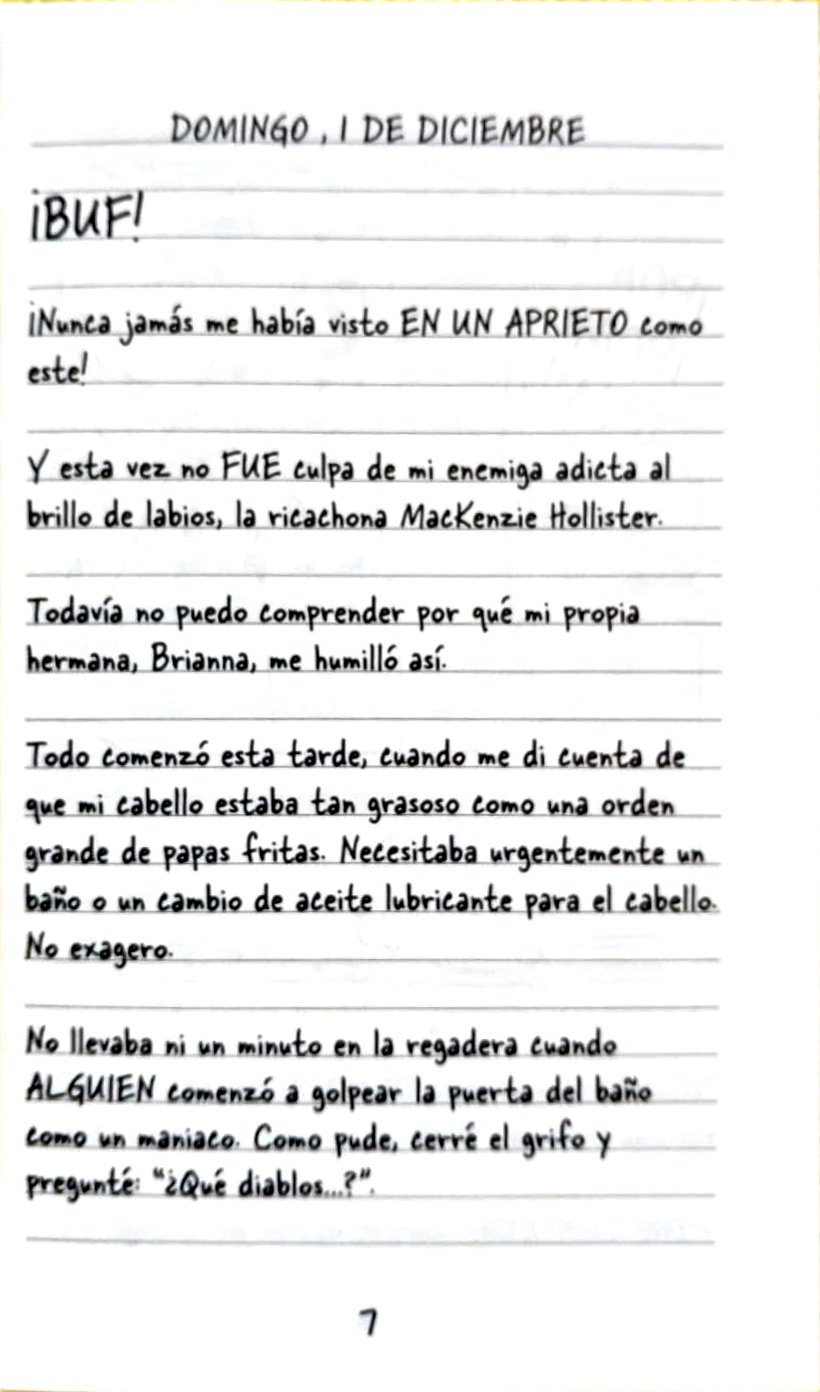 DOMINGO, 1 DE DICIEMBRE
¡BUF!
¡Nunca jamás me había visto EN UN APRIETO como
este!
Y esta vez no FUE culpa de mi enemiga adicta al
brillo de labios, la ricachona MacKenzie Hollister.
Todavía no puedo comprender por qué mi propia
hermana, Brianna, me humilló así.
Todo comenzó esta tarde, cuando me di cuenta de
que mi cabello estaba tan grasoso como una orden
grande de papas fritas. Necesitaba urgentemente un
baño o un cambio de aceite lubricante para el cabello.
No exagero.
No llevaba ni un minuto en la regadera cuando
ALGUIEN comenzó a golpear la puerta del baño
como un maniaco. Como pude, cerré el grifo y
pregunté: "¿Qué diablos...?".
7